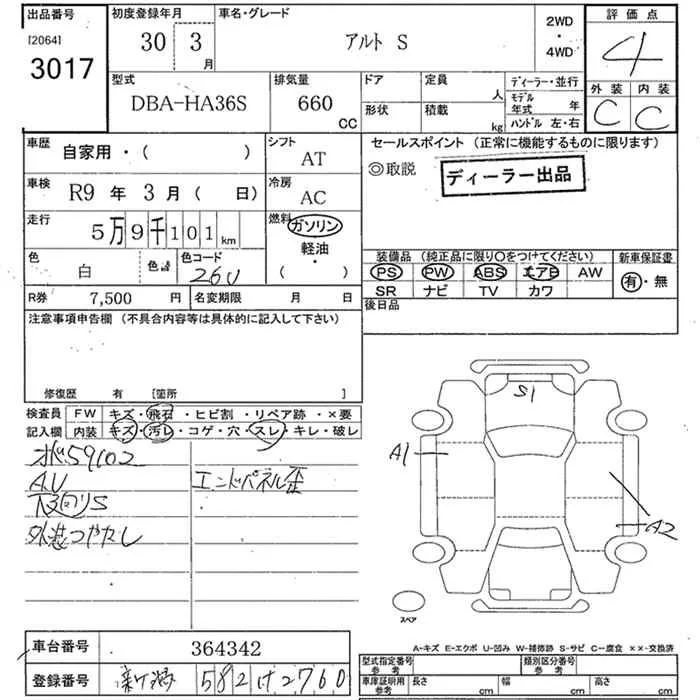 出品番号 初度登録年月 車名・グレード 2WD ・ 4WD 評価点
[2064] 3017 30 3月 アルト S 4
外装 内装
C C
型式 排気量 ドア 定員 人 ディーラー・並行
DBA-HA36S 660 CC 形状 積載 kg モデル年式 年
ハンドル 左・右
車歴 自家用・( ) シフト AT
セールスポイント (正常に機能するものに限ります)
◎取説 ディーラー出品
車検 R9 年 3 月( 日) 冷房 AC
走行 5万9千101km 燃料 ガソリン・軽油・( )
色 白 色No. 色コード 26U
装備品 (純正品に限り○をつけてください) 新車保証書
PS PW ABS エアB AW 有・無
SR ナビ TV カワ
R券 7,500 円 名変期限 月 日
後日品
注意事項申告欄 (不具合内容等は具体的に記入して下さい)
修復歴 有 [箇所 ]
検査員記入欄 FW キズ・飛石・ヒビ割・リペア跡・×要
内装 キズ・汚レ・コゲ・穴・スレ・キレ・破レ
59102
AU エンドパネル歪
下回りS
外装つやなし
S1
A1
A2
スペア
A-キズ E-エクボ U-凹み W-補修跡 S-サビ C-腐食 ××-交換済
車台番号 364342
登録番号 新潟 582 け 2760
型式指定番号 参考 類別区分番号 参考
車庫証明用 参考 長さ cm 幅 cm 高さ cm